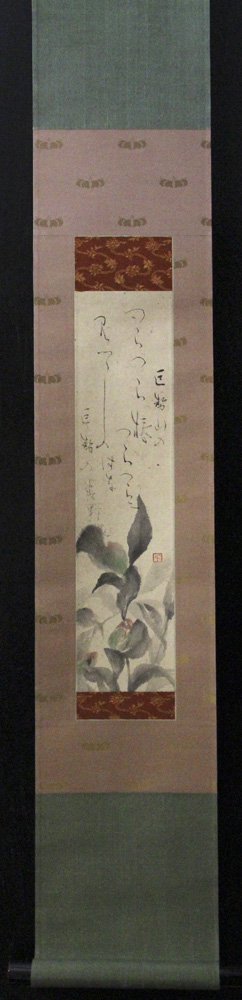 巨勢山の
つらつら椿
つらつらに
見つゝし
巨勢の春野